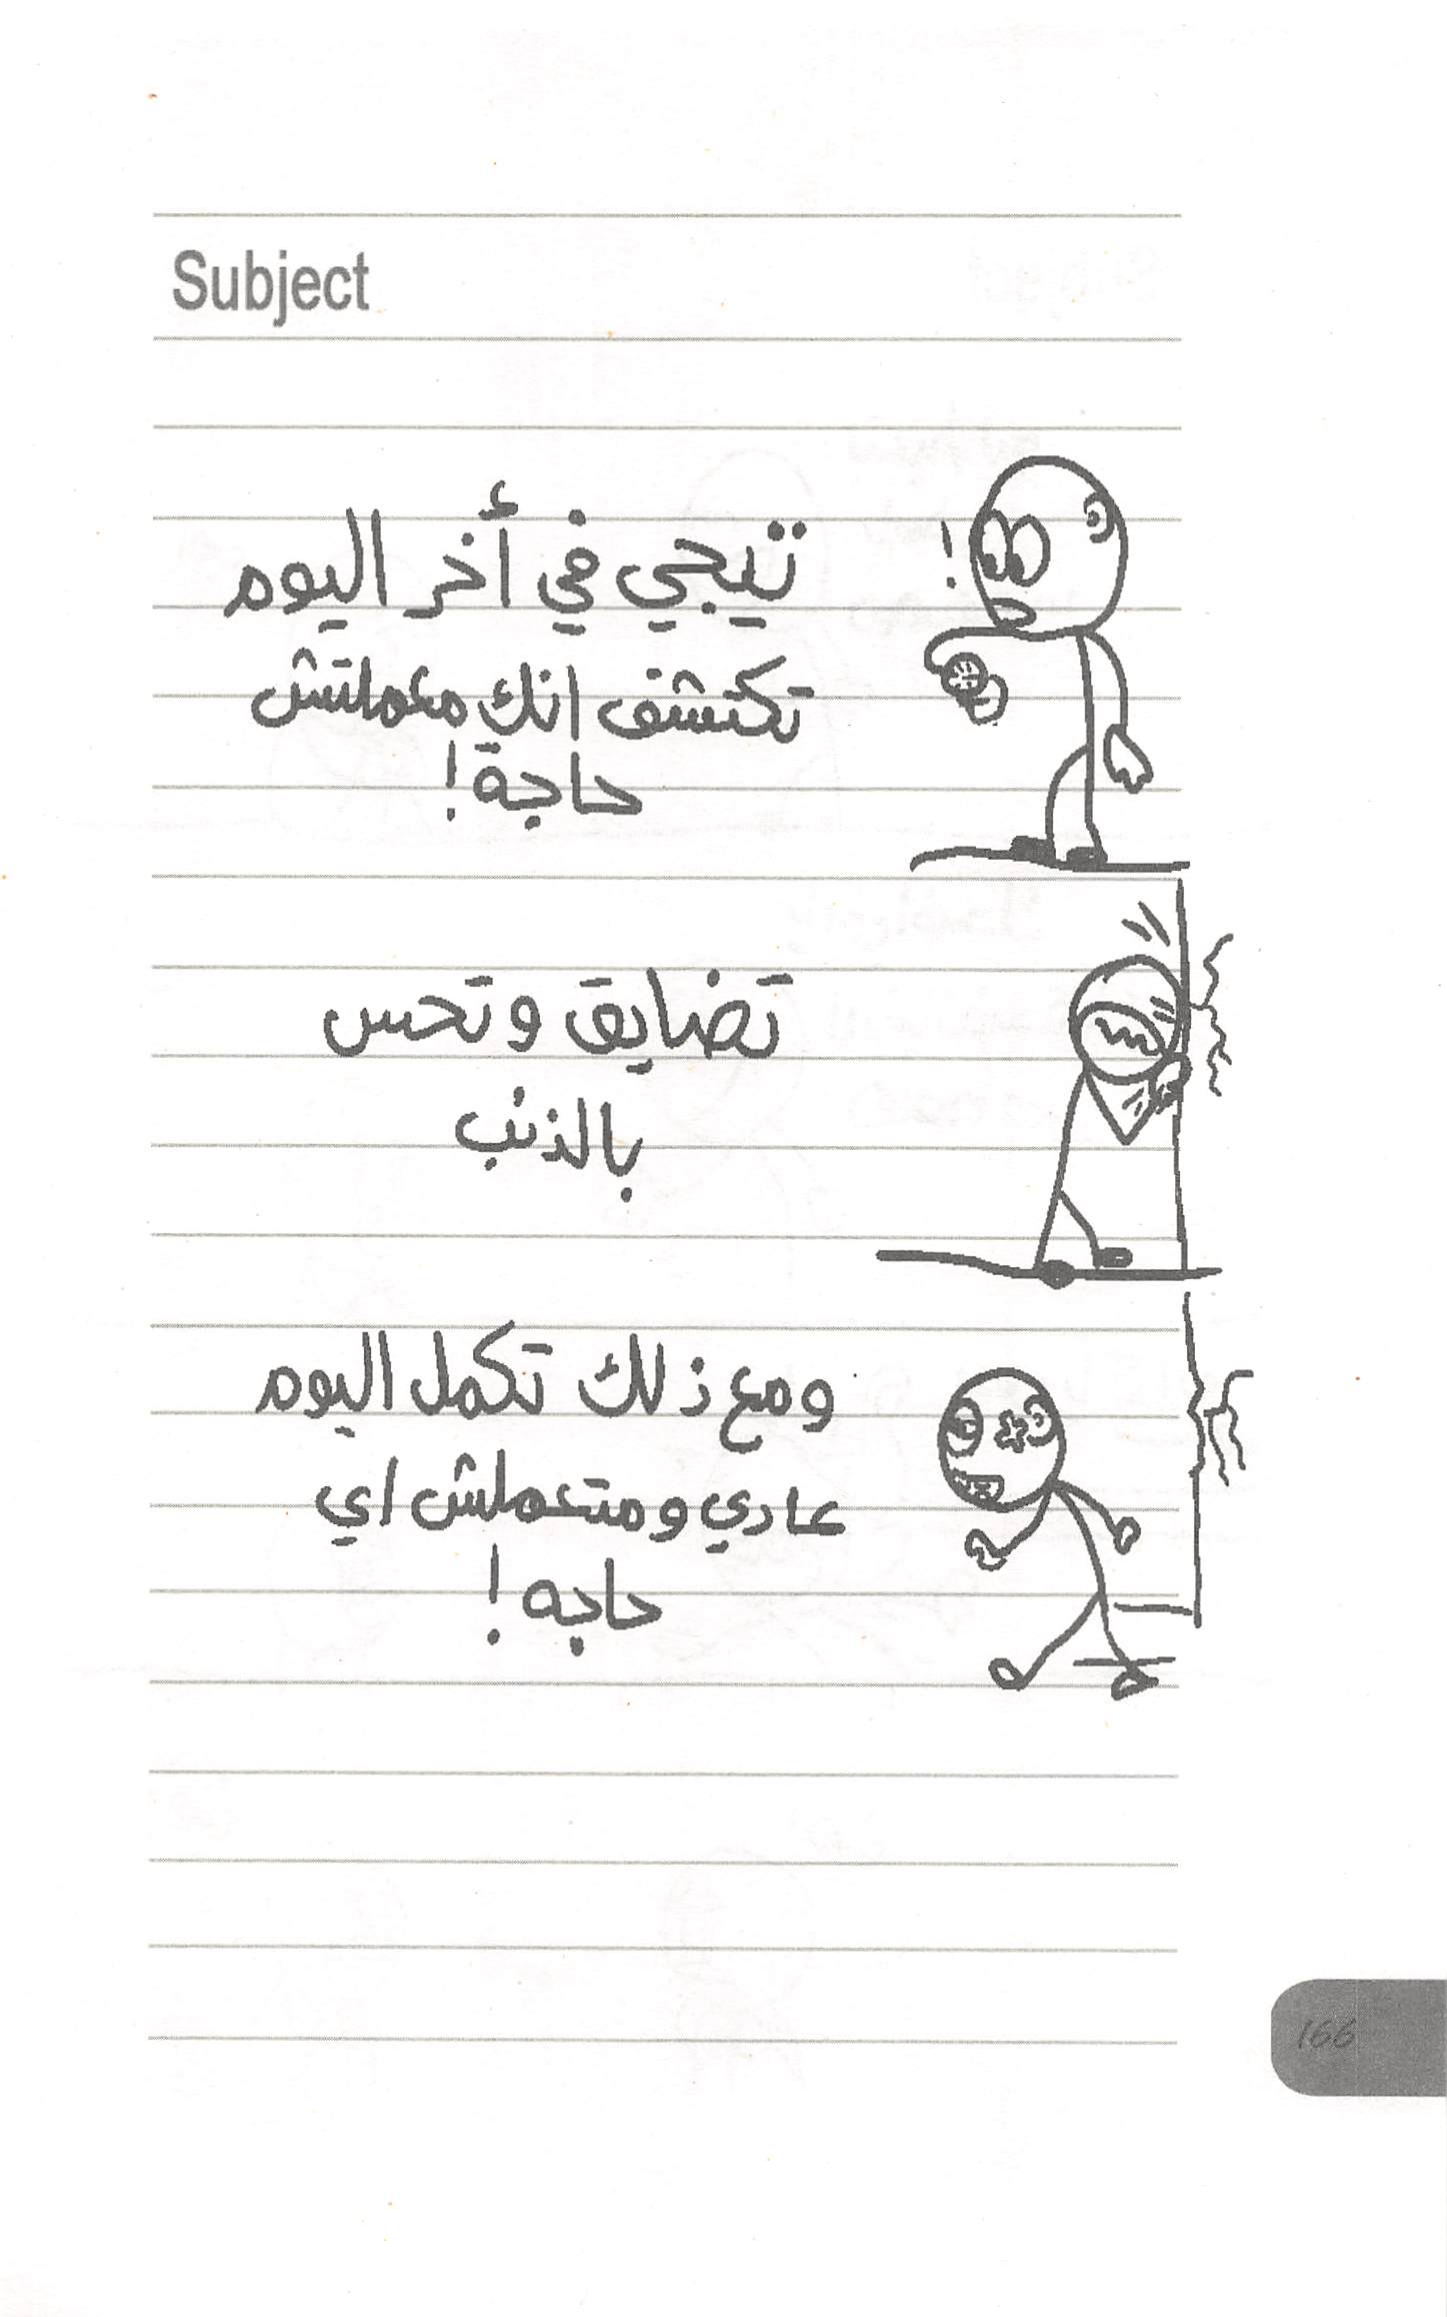 Subject
تيجي في أخر اليوم
تكتشف انك معملتش
حاجة!
تضايق وتحس
بالذنب
ومع ذلك تكمل اليوم
عادي ومتعملش اي
حاجه!
166